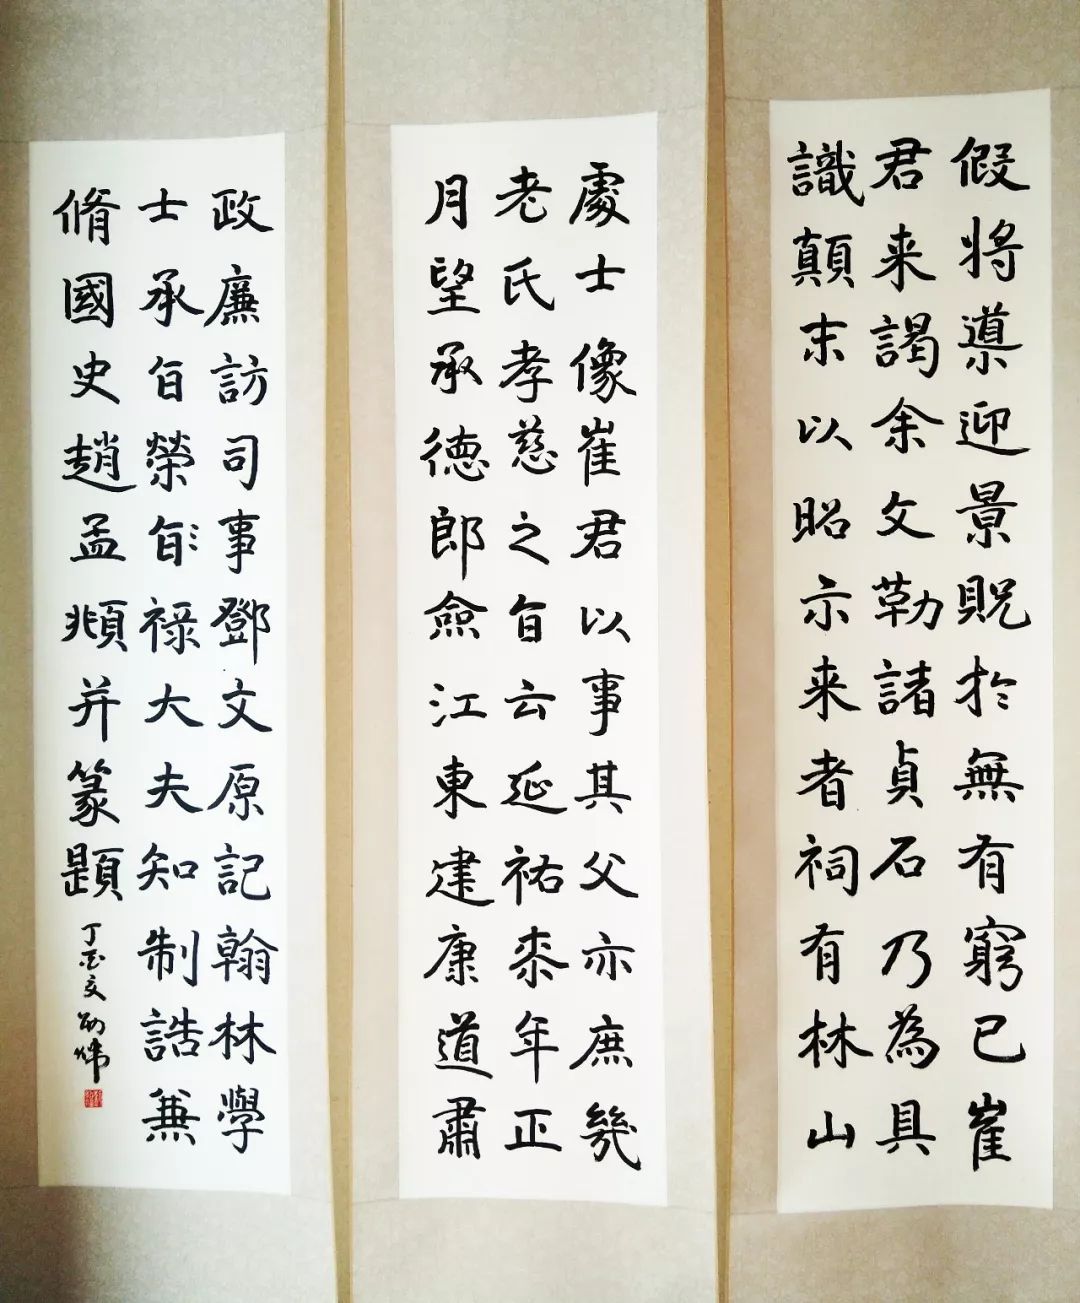 假将導迎景貺於無有窮已崔
君来謁余文勒諸貞石乃為具
識顛末以昭示来者祠有林山
處士像崔君以事其父亦庶幾
老氏孝慈之旨云延祐桼年正
月望承德郎僉江東建康道肅
政廉訪司事鄧文原記翰林學
士承旨榮旨祿大夫知制誥兼
脩國史趙孟頫并篆題
丁酉